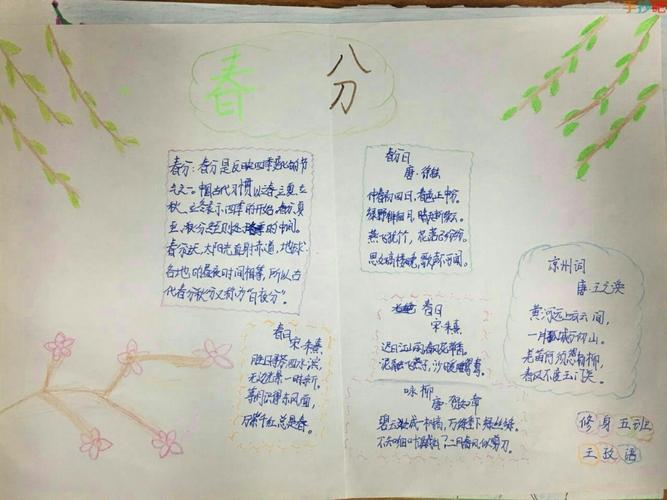 手抄吧
春分
春分：春分是反映四季变化的节
气之一。中国古代习惯以立春、立夏、立
秋、立冬表示四季的开始。春分、夏
至、秋分、冬至则处在各季的中间。
春分这天，太阳光直射赤道，地球
各地的昼夜时间相等，所以古
代春分秋分又称为“日夜分”。
春日
宋·朱熹
胜日寻芳泗水滨，
无边光景一时新。
等闲识得东风面，
万紫千红总是春。
春分日
唐·徐铉
仲春初四日，春色正中分。
绿野徘徊月，晴天断续云。
燕飞犹个个，花落已纷纷。
思妇高楼晚，歌声不可闻。
春日
宋·朱熹
迟日江山丽，春风花草香。
泥融飞燕子，沙暖睡鸳鸯。
咏柳
唐·贺知章
碧玉妆成一树高，万条垂下绿丝绦。
不知细叶谁裁出，二月春风似剪刀。
凉州词
唐·王之涣
黄河远上白云间，
一片孤城万仞山。
羌笛何须怨杨柳，
春风不度玉门关。
修身五班
王政